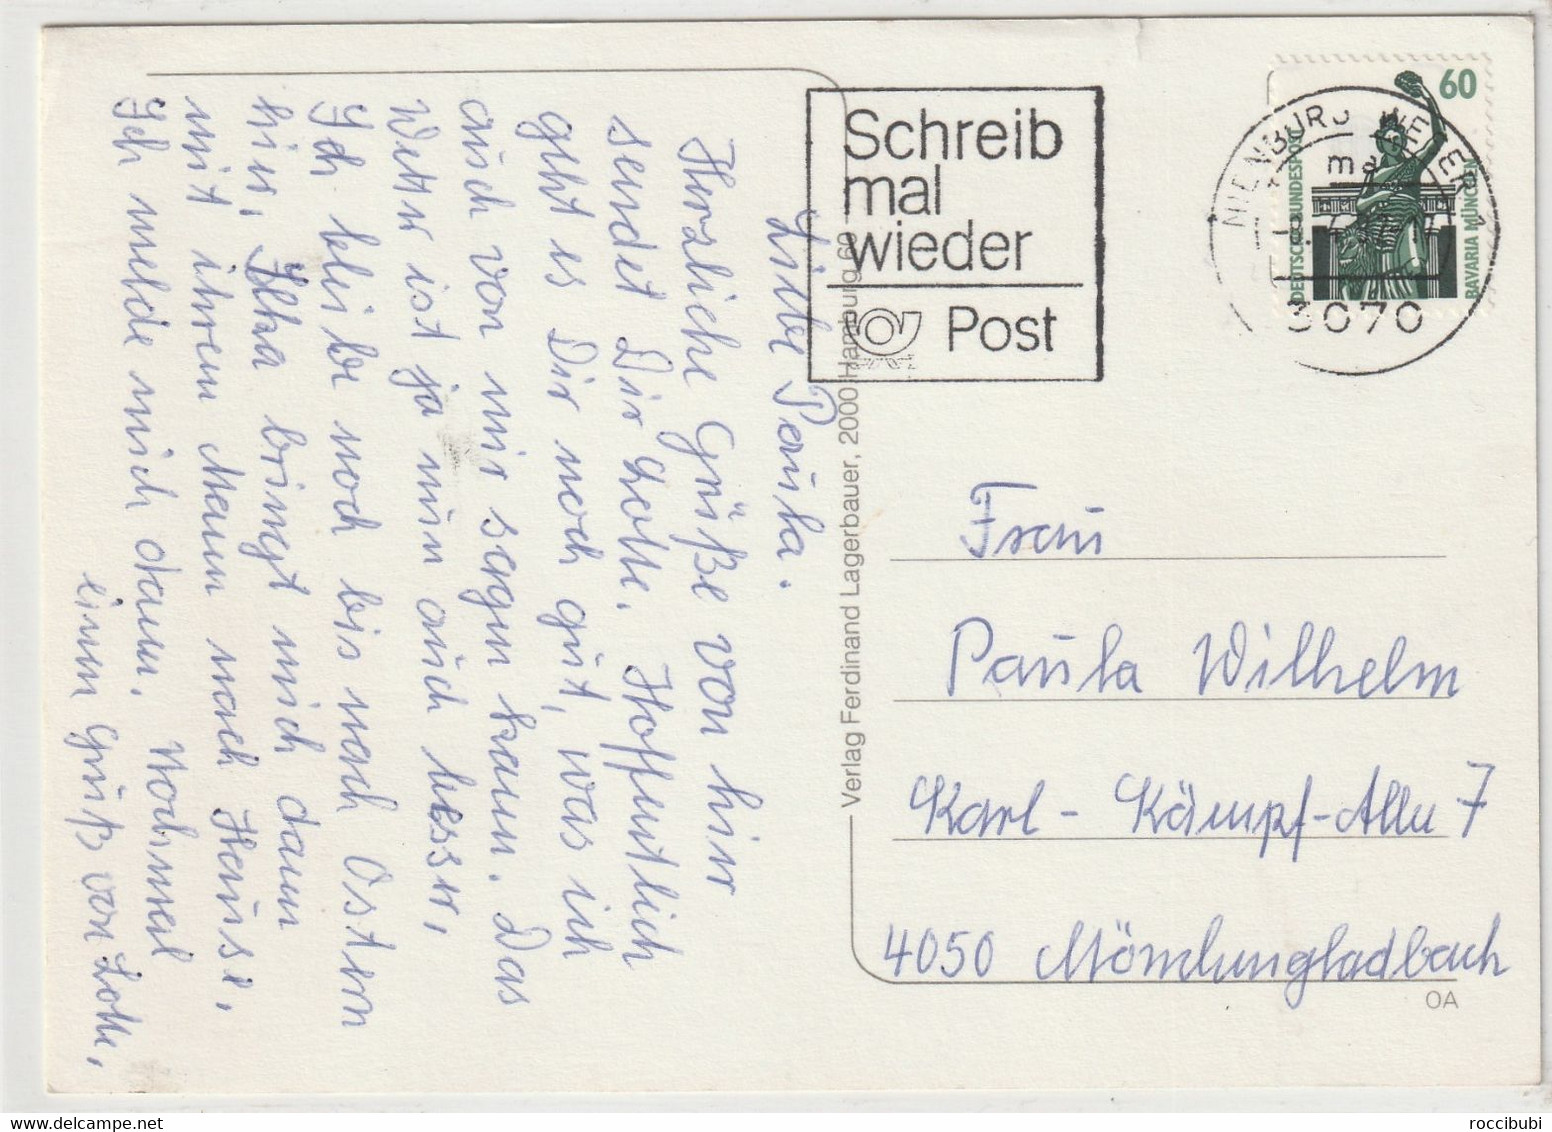 Liebe Paula.
Herzliche Grüße von hier
sendet Dir Lotte. Hoffentlich
geht es Dir noch gut, was ich
auch von mir sagen kann. Das
Wetter ist ja nun auch besser,
Ich bleibe noch bis nach Ostern
hier, Ilka bringt mich dann
mit ihrem Mann nach Hause,
Ich melde mich dann. Nochmal
einen Gruß von Lotte,
Verlag Ferdinand Lagerbauer, 2000 Hamburg 60
Schreib
mal
wieder
Post
NIENBURG WESER 1
3070
60
DEUTSCHE BUNDESPOST
BAVARIA MÜNCHEN
Frau
Paula Wilhelm
Karl-Kämpf-Allee 7
4050 Mönchengladbach
OA
roccibubi